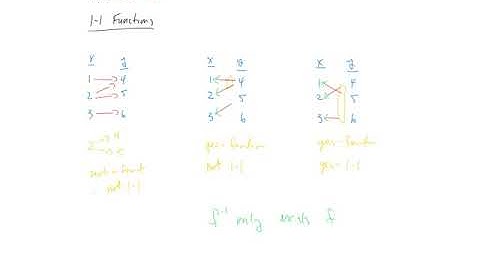 1-1 Functions
x y
1 4
2 5
3 6
not a funct
∴ not 1-1
x y
1 4
2 5
3 6
yes - function
not 1-1
x y
1 4
2 5
3 6
yes - function
yes - 1-1
f⁻¹ only exists if